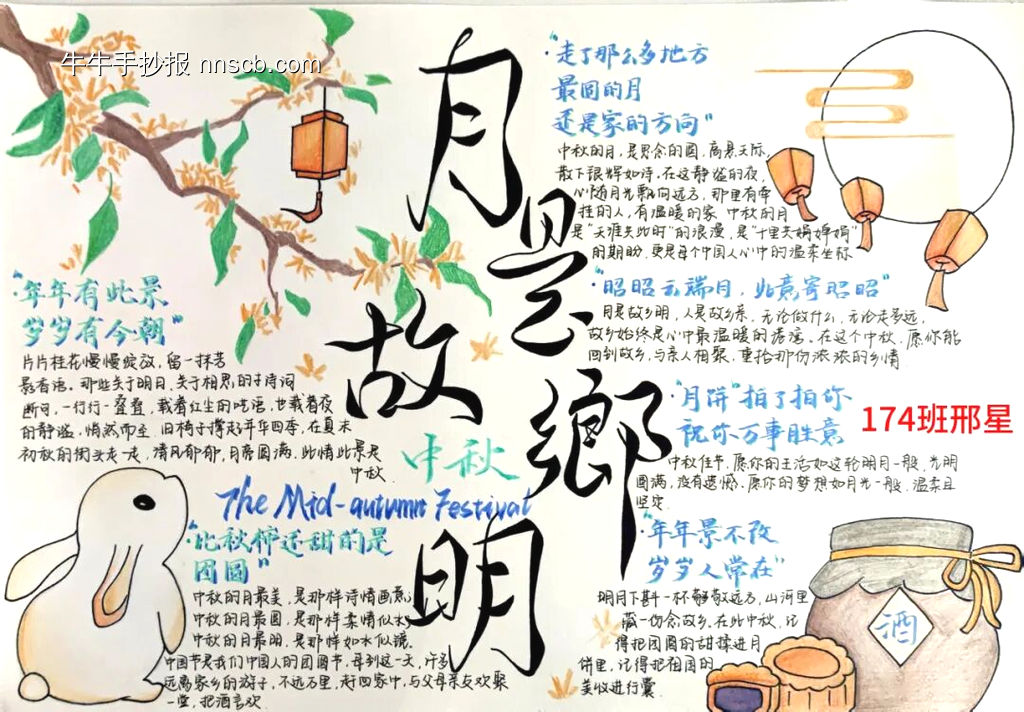 牛牛手抄报 nnscb.com
月是故鄉明
中秋
The Mid-autumn Festival
"走了那么多地方
最圆的月
还是家的方向"
中秋的月,是思念的圆,高悬天际,
散下银辉如诗,在这静谧的夜,
心随月光飘向远方,那里有牵
挂的人,有温暖的家 中秋的月
是"天涯共此时"的浪漫,是"千里共婵娟"
的期盼,更是每个中国人心中的温柔坐标
"昭昭云端月,此意寄昭昭"
月是故乡明,人是故乡亲,无论做什么,无论走多远,
故乡始终是心中最温暖的港湾。在这个中秋,愿你能
回到故乡,与亲人相聚,重拾那份浓浓的乡情
"年年有此景
岁岁有今朝"
片片桂花慢慢绽放,留一抹芳
那些关于明月、关于相思的诗词
断句,一行行一叠叠,载着红尘的呓语,也载着夜
的静谧,悄然而至 旧椅子撑起年华四季,在夏末
初秋的街头走一走,清风郁郁,月亮圆满,此情此景是
中秋
"月饼"拍了拍你
祝你万事胜意
174班邢星
中秋佳节,愿你的生活如这轮明月一般,光明
圆满,没有遗憾。愿你的梦想如月光一般,温柔且
坚定
"比秋梓还甜的是
团圆"
中秋的月最美,是那样诗情画意
中秋的月最圆,是那样柔情似水
中秋的月最明,是那样如水似镜
中国节是我们中国人的团圆节,每到这一天,许多
远离家乡的游子,不远万里,赶回家中,与父母亲友欢聚
一堂,把酒言欢
"年年景不改
岁岁人常在"
明月下斟一杯敬远方,山河里
藏一份念故乡,在此中秋,记
得把团圆的甜揉进月
饼里,记得把祖国的
美收进行囊
酒